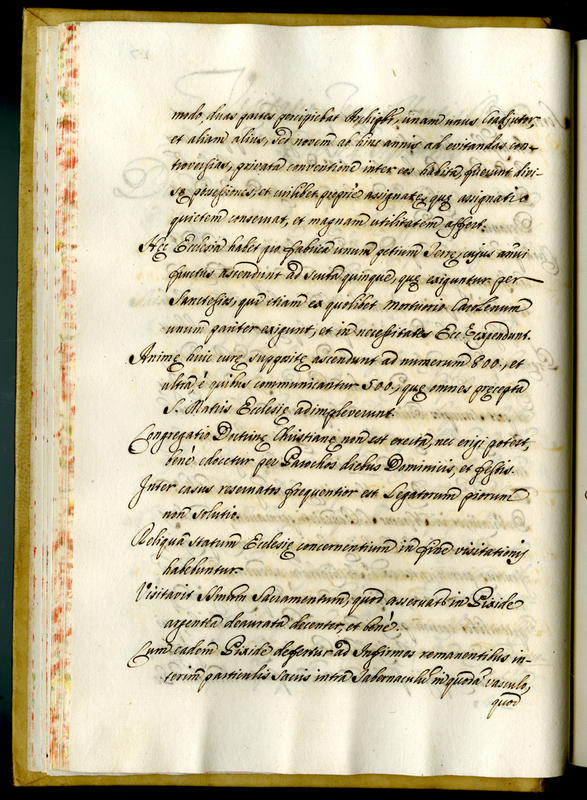 modo, duas partes percipiebat Archipbr, unam unus Coadjutor,
et aliam alius, sed novem ab hinc annis ad evitandas con-
troversias, privatâ conventione inter eos habitâ, fuerunt divi-
sę possessiones, et cuilibet proprię assignatę, quę assignatio
quietem conservat, et magnam utilitatem affert.
Hęc Ecclesia habet pro fabrica unum petium Terrę, cujus annui
fructus ascendunt ad scuta quinque, quę exiguntur per
Sanctesios, qui etiam ex quolibet mortuorio Carolenum
unum pariter exigunt, et in necessitates Eccę expendunt.
Animę huic curę suppositę ascendunt ad numerum 800., et
ultra è quibus communicantur 500., quę omnes pręcepta
S. Matris Ecclesię adimpleverunt.
Congregatio Doctrinę Christianę non est erecta, nec erigi potest,
benè edocetur per Parochos diebus Dominicis, et festis.
Inter casus reservatos frequentior est Legatorum piorum
non solutio.
Reliqua statum Ecclesię concernentium in fine visitationis
habebuntur.
Visitavit SSmum Sacramentum, quod asservatur in Pixide
argentea deaurata decenter, et benè.
Cum eadem Pixide defertur ad Infirmos remanentibus in-
terim particulis sacris intra Tabernaculum in quodam vasculo,
quod